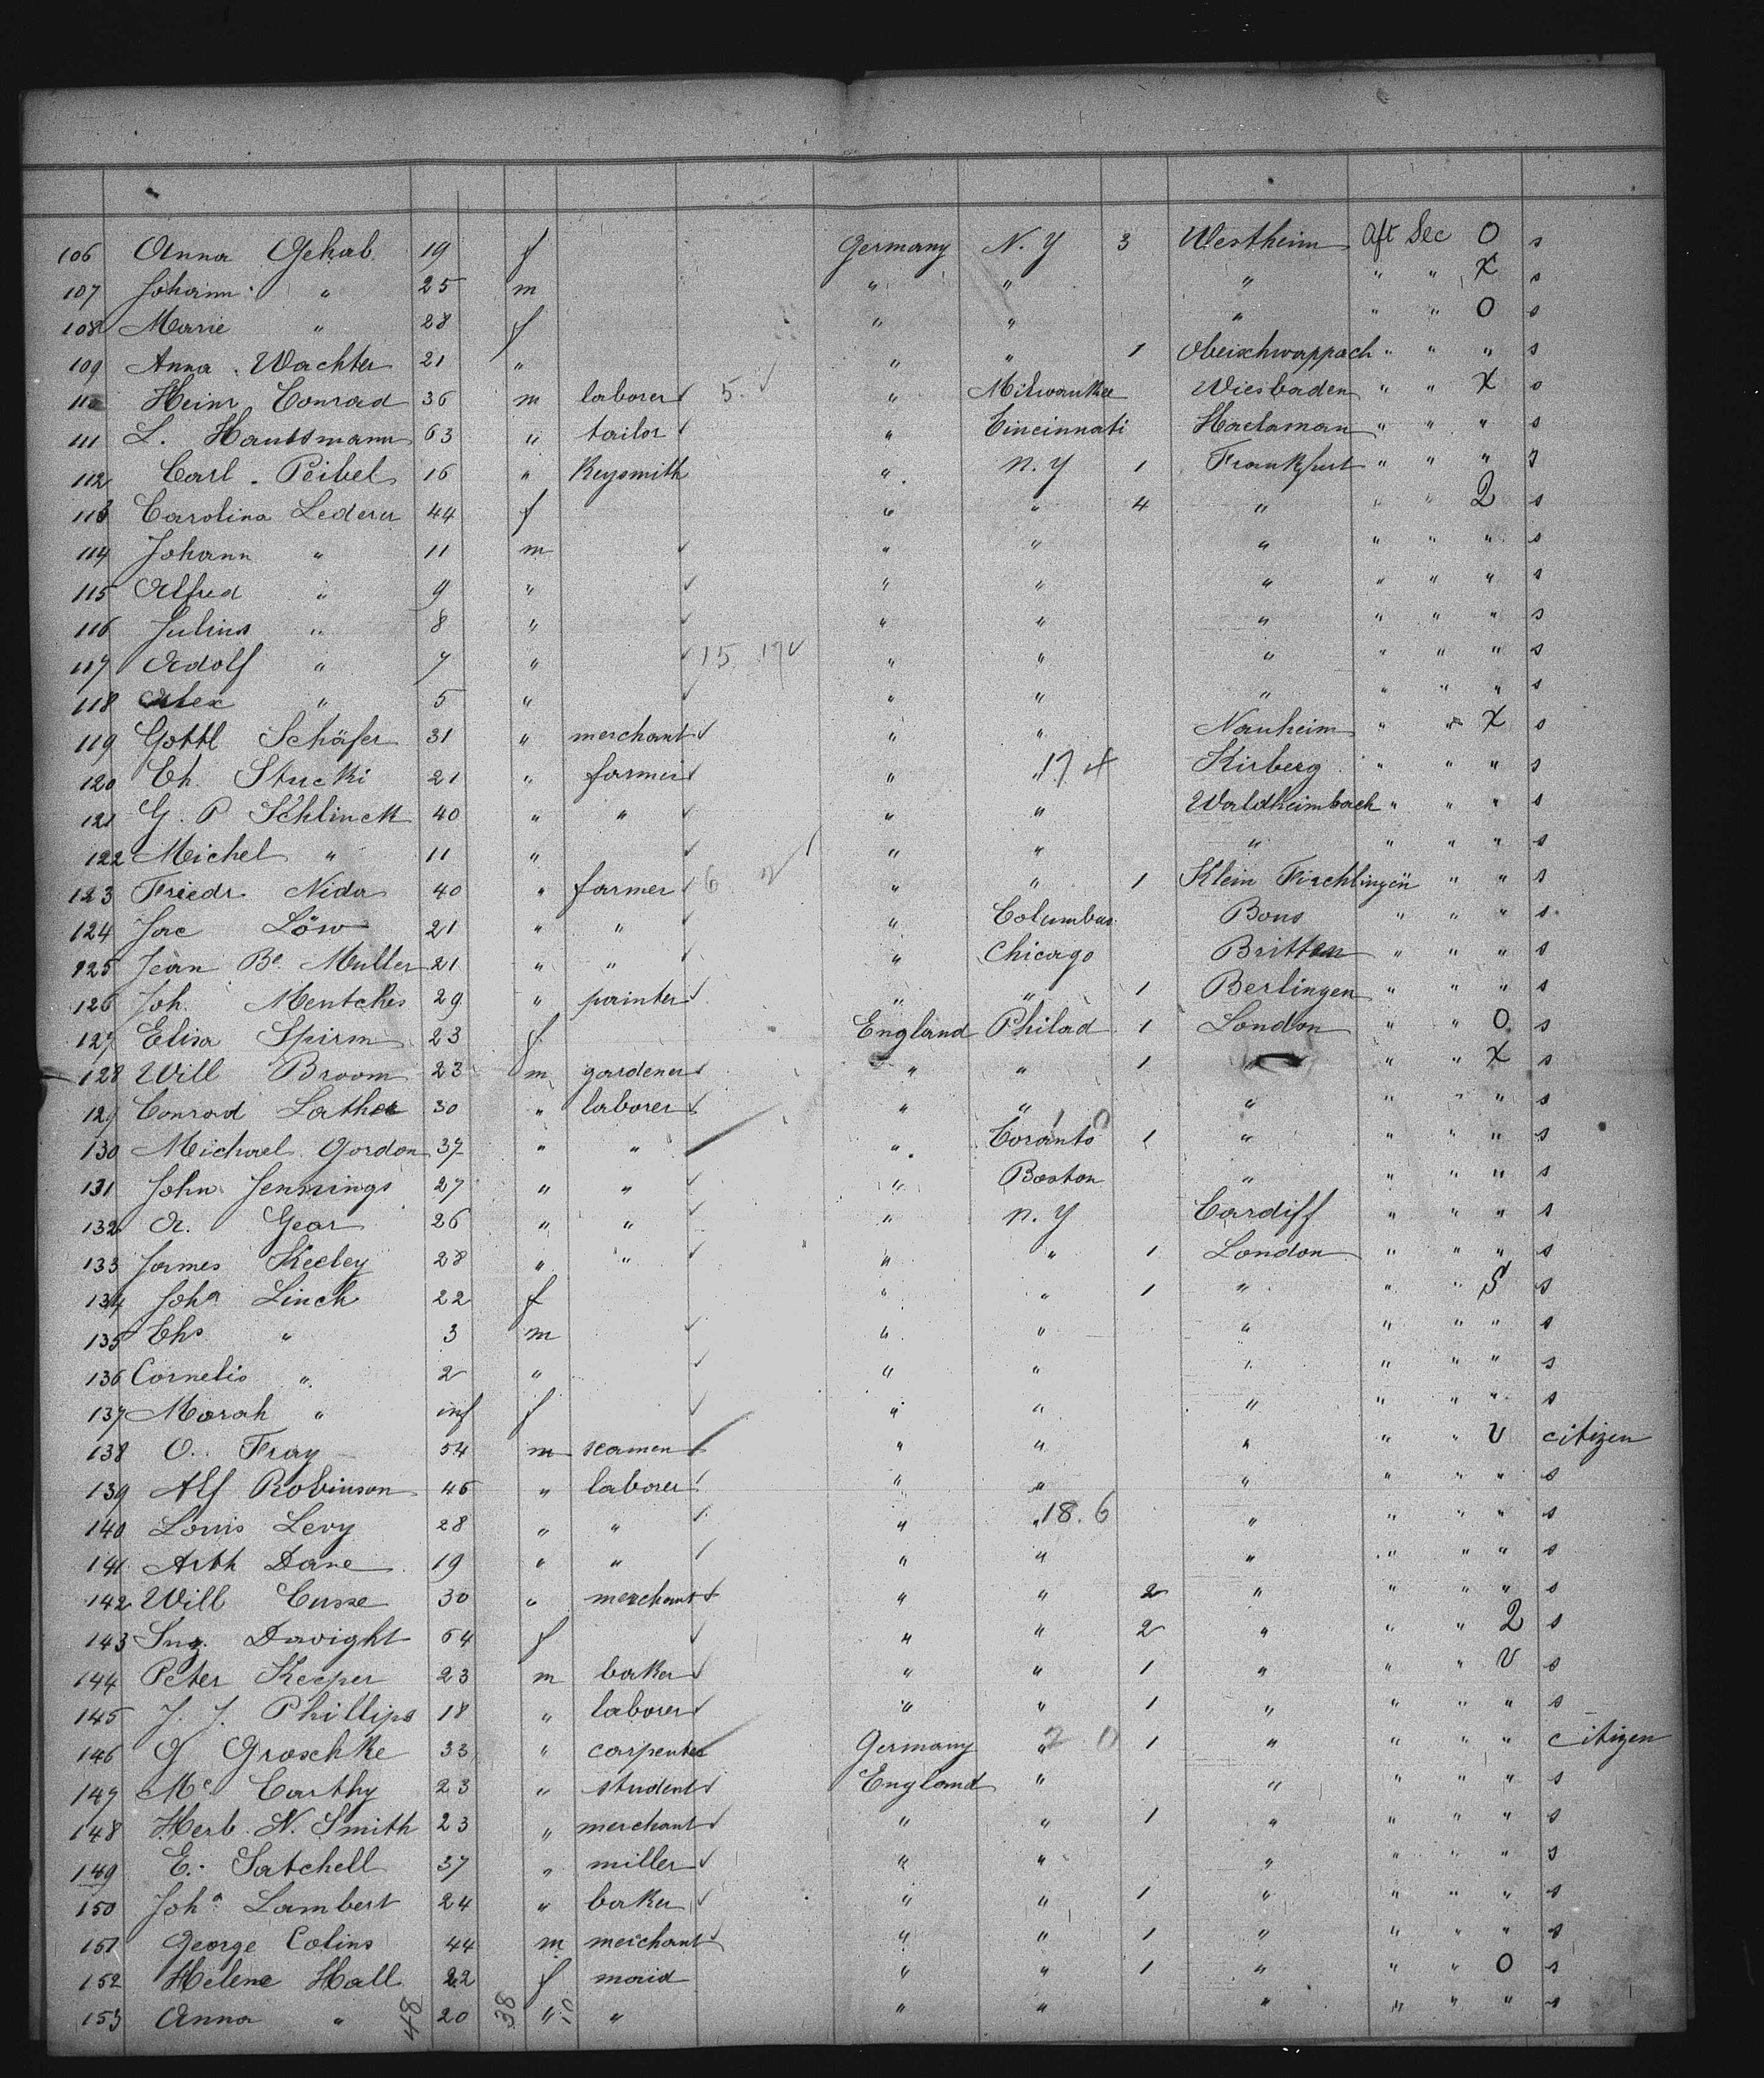 106 Anna Gehab 19 f Germany N. Y 3 Westheim Aft Sec O s
107 Johann " 25 m " " " " " X s
108 Marie " 28 f " " " " " O s
109 Anna Wachter 21 " " " 1 Obeischwappach " " " s
110 Heinr Conrad 36 m laborer 5. " Milwaukee Wiesbaden " " X s
111 L. Hautsmann 63 " tailor " Cincinnati Hadaman " " " s
112 Carl Peibel 16 " Keysmith " N. Y 1 Frankfurt " " " s
113 Carolina Lederer 44 f " " 4 " " " Q s
114 Johann " 11 m " " " " " " s
115 Alfred " 9 " " " " " " " s
116 Julius " 8 " " " " " " " s
117 Adolf " 7 " 15 17 " " " " " " s
118 Alex " 5 " " " " " " " s
119 Gottl Schäfer 31 " merchant " " Nauheim " " X s
120 Ch. Stucki 21 " farmer " " 17 Kirberg " " " s
121 G. P Schlinck 40 " " " " Waldheimbach " " " s
122 Michel " 11 " " " " " " " s
123 Friedr Nida 40 " farmer 6 " " 1 Klein Fischlingen " " s
124 Jac Löw 21 " " " Columbus Bous " " " s
125 Jean Be Muller 21 " " " Chicago Britten " " " s
126 Joh. Mentches 29 " painter " " 1 Berlingen " " " s
127 Elisa Spirm 23 f England Philad 1 London " " O s
128 Will Broom 23 m gardener " " 1 " " " X s
129 Conrad Lather 30 " laborer " " " " " " s
130 Michael Gordon 37 " " " Toranto 1 " " " " s
131 John Jennings 27 " " " Boston " " " " s
132 A. Gear 26 " " " N. Y Cardiff " " " s
133 James Keeley 28 " " " " 1 London " " " s
134 Joha Linch 22 f " " 1 " " " S s
135 Chs " 3 m " " " " " " s
136 Cornelis " 2 " " " " " " " s
137 Morah " inf f " " " " " " s
138 O. Fray 54 m seamen " " " " " V citizen
139 Alf Robinson 46 " laborer " " " " " " s
140 Louis Levy 28 " " " " 18.6 " " " " s
141 Arth Dane 19 " " " " " " " " s
142 Will Cusse 30 " merchant " " 2 " " " " s
143 Dwight 64 f " " 2 " " " Q s
144 Peter Keeper 23 m baker " " 1 " " " V s
145 J. J. Phillips 18 " laborer " " 1 " " " " s
146 G Groschke 33 " carpenter Germany " 1 " " " " citizen
147 Mc Carthy 23 " student England " " " " " s
148 Herb. N. Smith 23 " merchant " " 1 " " " " s
149 E. Satchell 37 " miller " " " " " " s
150 Joha Lambert 24 " baker " " 1 " " " " s
151 George Colins 44 m merchant " " 1 " " " " s
152 Helene Hall 22 f maid " " 1 " " " O s
153 Anna " 20 " " " " " " " " s
48 38 10